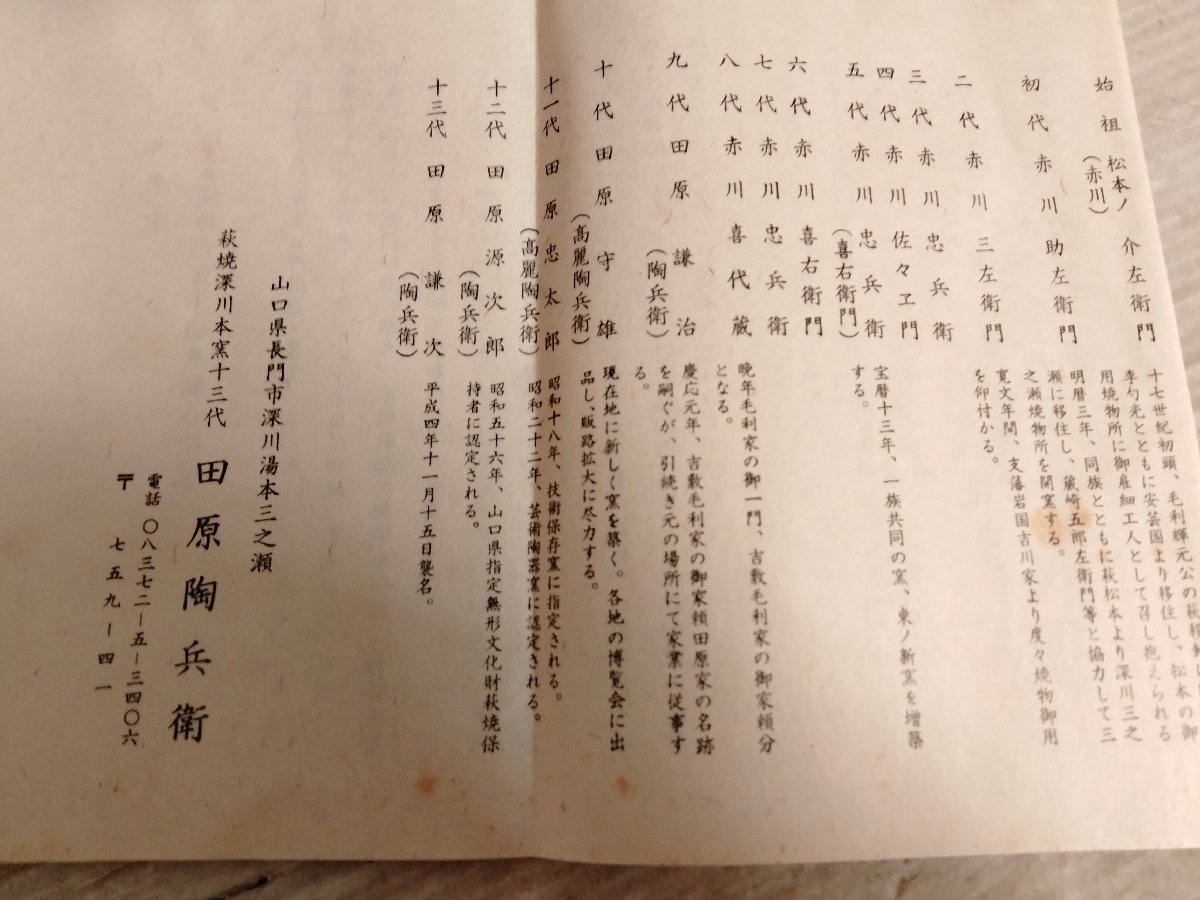 十七世紀初頭、毛利輝元公の萩
李勺光とともに安芸国より移住し、松本の御
用焼物所に御雇細工人として召し抱えられる
始祖 松本ノ(赤川) 介左衛門
明暦三年、同族とともに萩松本より深川三之
瀬に移住し、蔵崎五郎左衛門等と協力して三
之瀬焼物所を開窯する。
初代 赤川 助左衛門
寛文年間、支藩岩国吉川家より度々焼物御用
を仰付かる。
二代 赤川 三左衛門
三代 赤川 忠兵衛
四代 赤川 佐々ヱ門
五代 赤川 忠兵衛
(喜右衛門)
宝暦十三年、一族共同の窯、東ノ新窯を増築
する。
六代 赤川 喜右衛門
七代 赤川 忠兵衛
八代 赤川 喜代蔵
晩年毛利家の御一門、吉敷毛利家の御家頼分
となる。
九代 田原 謙治
(陶兵衛)
慶応元年、吉敷毛利家の御家頼田原家の名跡
を嗣ぐが、引続き元の場所にて家業に従事す
る。
十代 田原 守雄
(高麗陶兵衛)
現在地に新しく窯を築く。各地の博覧会に出
品し、販路拡大に尽力する。
十一代 田原 忠太郎
(高麗陶兵衛)
昭和十八年、技術保存窯に指定される。
昭和二十二年、芸術陶器窯に認定される。
十二代 田原 源次郎
(陶兵衛)
昭和五十六年、山口県指定無形文化財萩焼保
持者に認定される。
十三代 田原 謙次
(陶兵衛)
平成四年十一月十五日襲名。
山口県長門市深川湯本三之瀬
萩焼深川本窯十三代 田原陶兵衛
電話 〇八三七二ー五ー三四〇六
〒 七五九ー四一